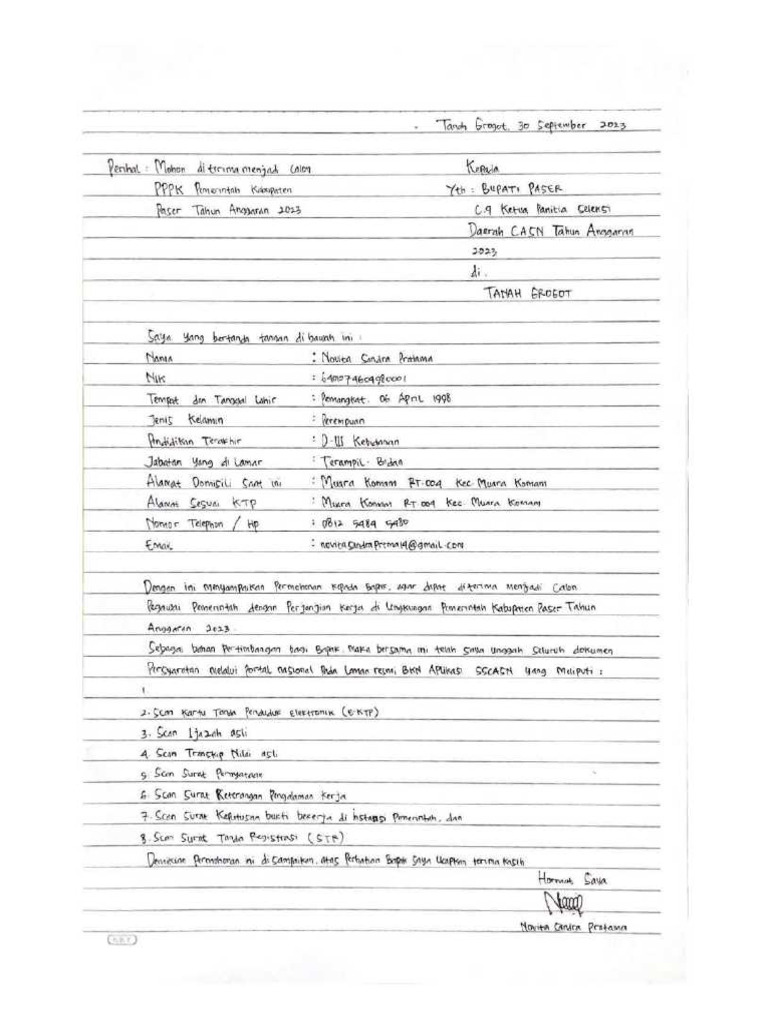 Tanah Grogot, 30 September 2023
Perihal : Mohon di terima menjadi Calon
PPPK Pemerintah Kabupaten
Paser Tahun Anggaran 2023
Kepada
Yth : BUPATI PASER
C.q Ketua Panitia Seleksi
Daerah CASN Tahun Anggaran
2023
di.
TANAH GROGOT
Saya yang bertanda tangan di bawah ini :
Nama : Novita Sandra Pratama
NIK :
Tempat dan Tanggal Lahir : Pemangkat, 06 April 1998
Jenis Kelamin : Perempuan
Pendidikan Terakhir : D-III Kebidanan
Jabatan Yang di Lamar : Terampil - Bidan
Alamat Domisili Saat ini : Muara Komam RT.004 Kec. Muara Komam
Alamat Sesuai KTP : Muara Komam RT 004 Kec. Muara Komam
Nomor Telephon / Hp : 0812 5484 5480
Email : novitasandrapratma14@gmail.com
Dengan ini menyampaikan Permohonan Kepada Bapak, agar dapat diterima Menjadi Calon
Pegawai Pemerintah dengan Perjanjian Kerja di Lengkungan Pemerintah Kabupaten Paser Tahun
Anggaran 2023.
Sebagai bahan Pertimbangan bagi Bapak, Maka bersama ini telah Saya Unggah Seluruh dokumen
Persyaratan melalui Portal nasional Pada Laman resmi BKN Aplikasi SSCASN yang Meliputi :
1.
2. Scan Kartu Tanda Penduduk Elektronik (E-KTP)
3. Scan Ijazah asli
4. Scan Transkip Nilai asli
5. Scan Surat Pernyataan
6. Scan Surat Keterangan Pengalaman Kerja
7. Scan Surat Keputusan bukti bekerja di instansi Pemerintah, dan
8. Scan Surat Tanda Registrasi (STR)
Demikian Permohonan ini di sampaikan, atas Perhatian Bapak Saya Ucapkan terima kasih
Hormat Saya
Novita Sandra Pratama